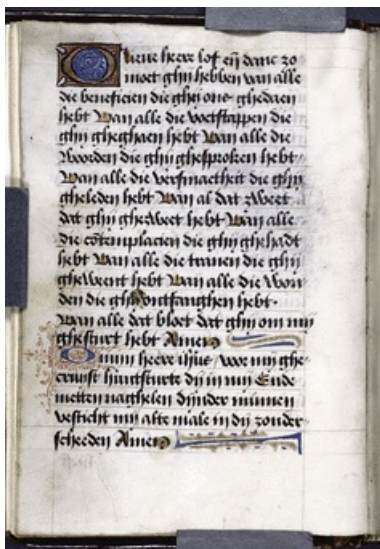 O lieve heere lof eñ danc zo
moet ghij hebben van alle
die beneficien die ghij ons ghedaen
hebt Van alle die voetstappen die
ghij gheghaen hebt Van alle die
Woorden die ghij ghesproken hebt·
Van alle die versmaetheit die ghij
gheleden hebt Van al dat zweet
dat ghij ghezweet hebt Van alle
die cōtemplacien die ghij ghehadt
hebt Van alle die tranen die ghij
gheweent hebt Van alle die Won
den die ghij ontfanghen hebt·
Van alle dat bloet dat ghij om mij
ghesturt hebt Amen
O mijn heere voor mij ghe
cruust
metten naghelen dijnder minnen
vesticht mij alte male in dij zonder
scheeden Amen